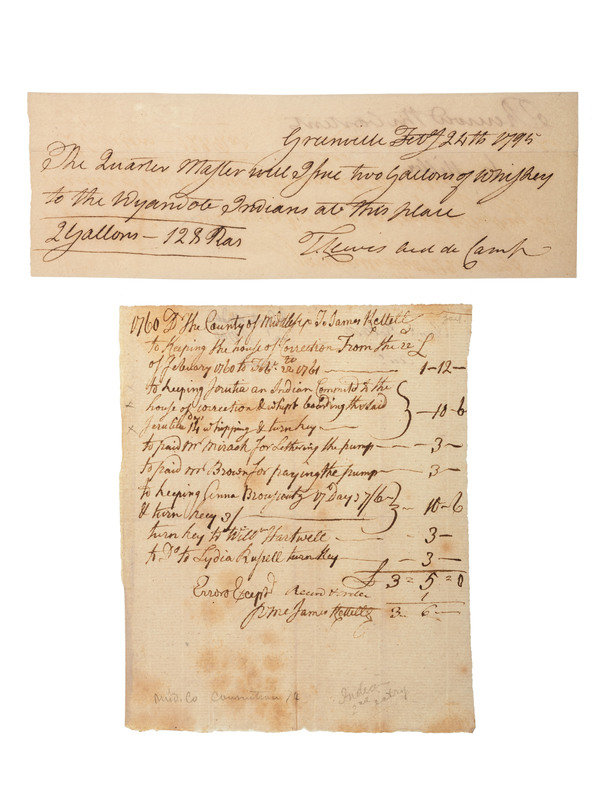 Greenville Feby 24th 1795
The Quarter Master will Issue two Gallons of Whiskey
to the Wyandote Indians at this place
2 Gallons – 128 Ras
T Lewis aid de Camp
1760 Dr The County of Middlesex To James Kellett
to Keeping the house of Correction From the 22 £
of February 1760 to Feb. 22 1761 — 1–12–
to keeping an Indian Comited to the
house of correction & whipt boarding the said
14 Days whipping & turnkey — –10–6
to paid Mr for Lethering the pump — 3 –
to paid Mr Brown for the pump — 3 –
to keeping Anna 17 Days 7/6
& turn keey 3/ – 10–6
turn key to Willm Hartwell — 3 –
to Do to Lydia Russell turn key – 3 –
£ 3 = 5 = 0
Errors Excepd
1
Pr me James Kellett 3 – 6 –
Mid. Co
Indian
2nd entry